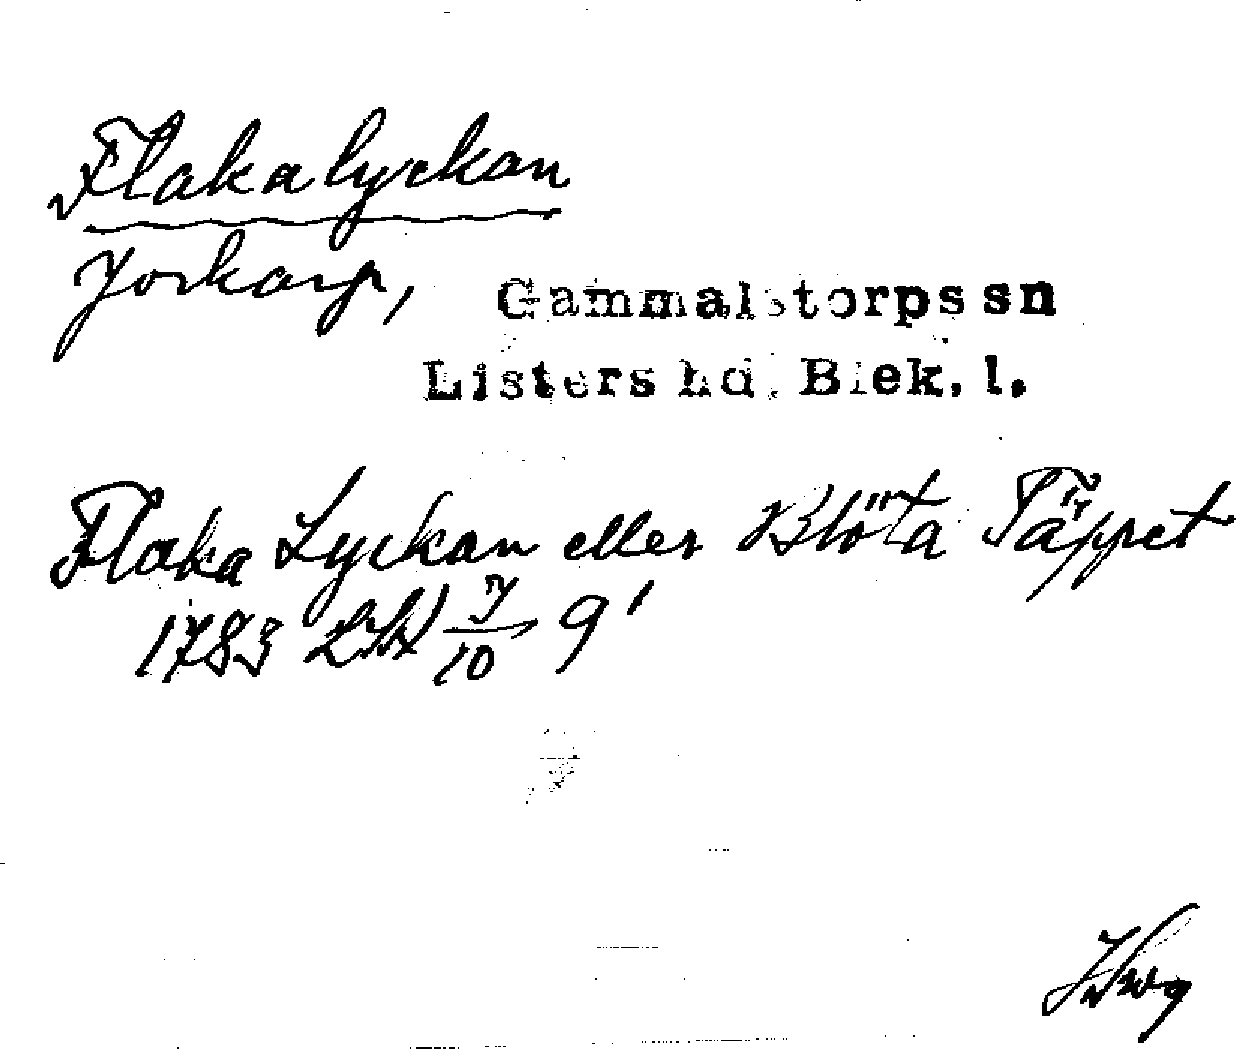 Flakalyckan
Jorkarp,
Gammalstorps sn
Listers hd. Blek. l.
Flaka Lyckan eller Blöta Täppet
1783 LSA 7/10 9'